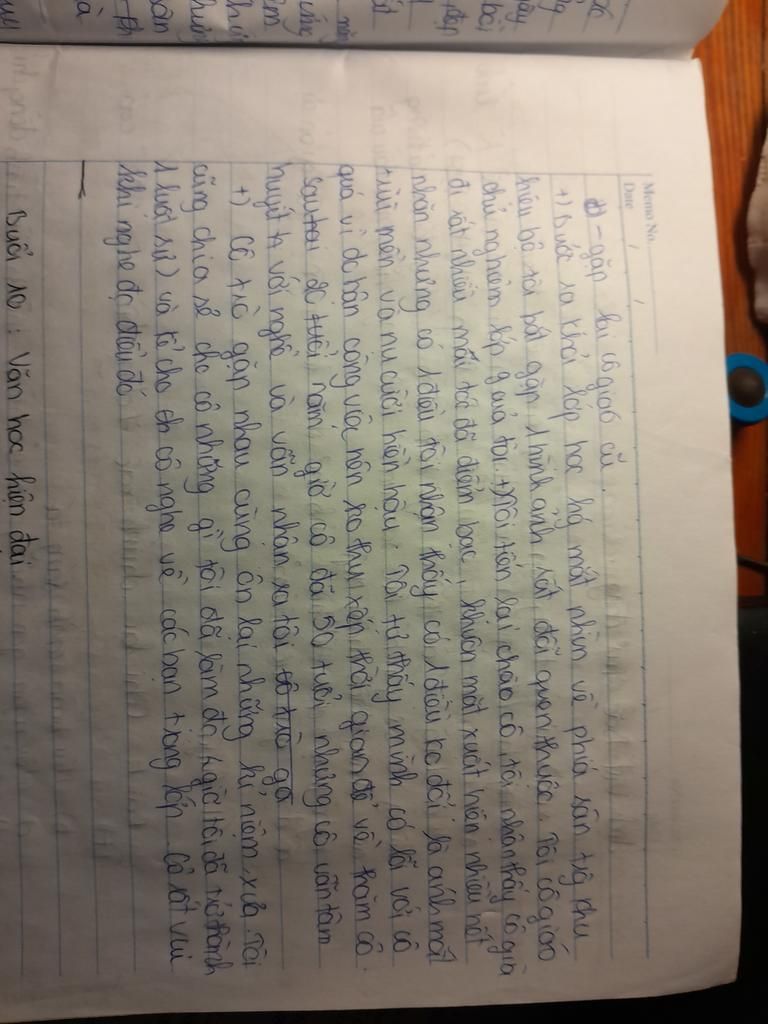 Memo No.
Date
- gặp lại cô giáo cũ.
+) Bước ra khỏi lớp học há mắt nhìn về phía sân trg khu
hiệu bộ tôi bắt gặp 1 hình ảnh rất đỗi quen thuộc. Tôi cô giáo
chủ nghiệm lớp 9 của tôi. +) Tôi tiến lại chào cô, tôi nhận thấy cô già
đi rất nhiều mái tóc đã điểm bạc, khuôn mặt xuất hiện nhiều nết
nhăn nhưng có 1 điều tôi nhận thấy có 1 điều ko đổi là ánh mắt
trìu mến và nụ cười hiền hậu. Tôi tự thấy mình có lỗi với cô
quá vì do bận công việc nên ko thu xếp thời gian để về thăm cô.
sau hơn 20 tuổi năm giờ cô đã 50 tuổi nhưng cô vẫn tâm
huyết vs với nghề và vẫn nhận ra tôi cô trò gặ
+) Cô trò gặp nhau cùng ôn lại những kỉ niệm xưa. Tôi
cũng chia sẻ cho cô những gì tôi đã làm đc, giờ tôi đã trở thành
1 luật sư) và kể cho cô nghe về các bạn trong lớp. Cô rất vui
khi nghe đc điều đó
Buổi 10 : Văn học hiện đại